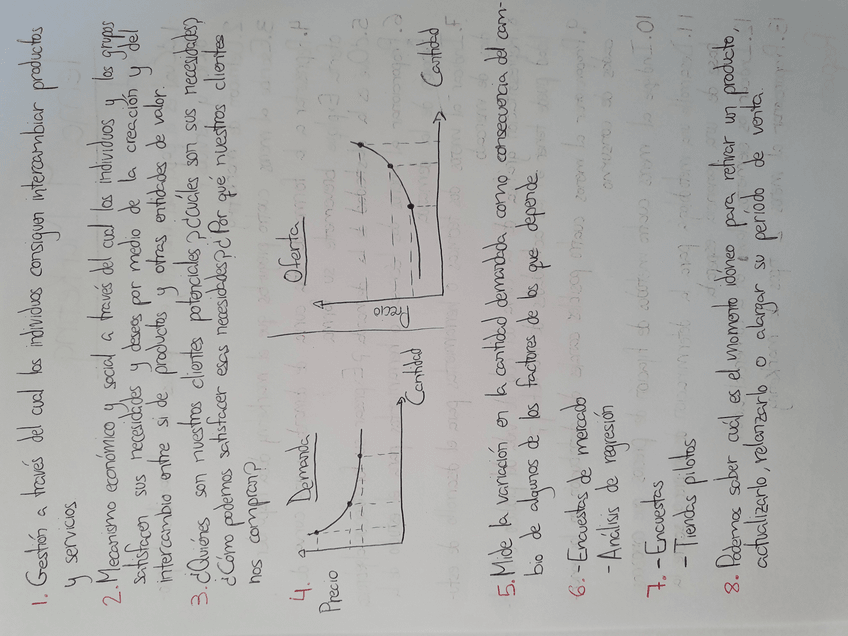 1. Gestión a través del cual los individuos consiguen intercambiar productos
y servicios
2. Mecanismo económico y social a través del cual los individuos y los grupos
satisfacen sus necesidades y deseos por medio de la creación y del
intercambio entre si de productos y otras entidades de valor.
3. ¿Quiénes son nuestros clientes potenciales? ¿Cuáles son sus necesidades?
¿Cómo podemos satisfacer esas necesidades? ¿Por qué nuestros clientes
nos compran?
4.
Demanda
Precio
Cantidad
Oferta
Precio
Cantidad
5. Mide la variación en la cantidad demandada como consecuencia del cam-
bio de algunos de los factores de los que depende.
6. - Encuestas de mercado
- Análisis de regresión
7. - Encuestas
- Tiendas pilotos
8. Podemos saber cuál es el momento idóneo para retirar un producto,
actualizarlo, relanzarlo o alargar su período de venta.